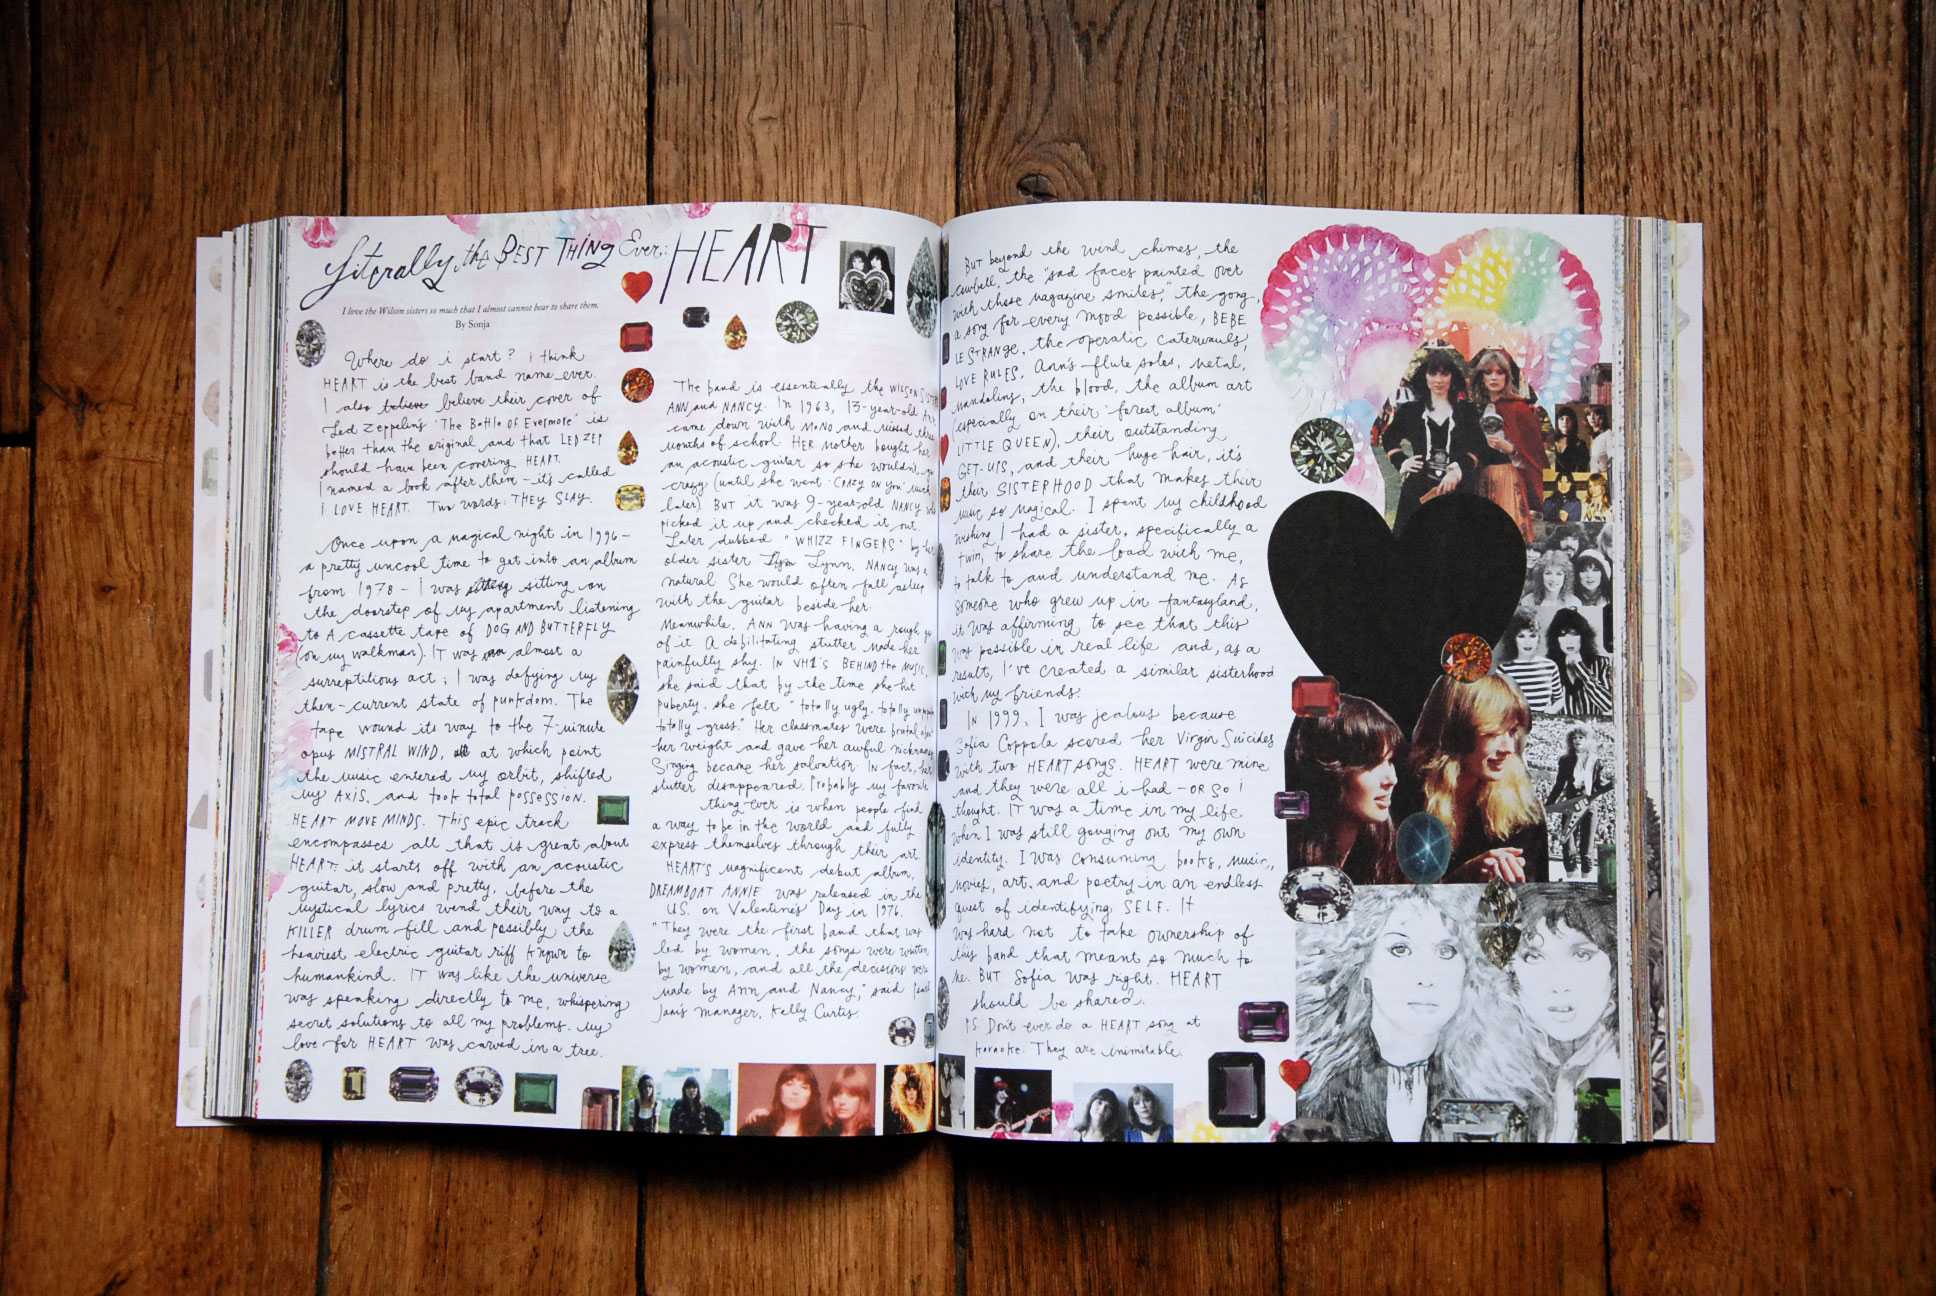 Literally the BEST THING Ever: HEART
I love the Wilson sisters so much that I almost cannot bear to share them.
By Sonja
Where do i start? i think
HEART is the best band name ever.
I also believe their cover of
Led Zeppelin's 'The Battle of Evermore' is
better than the original and that LED ZEP
should have been covering HEART.
I named a book after them - it's called
I LOVE HEART. Two words: THEY SLAY.
Once upon a magical night in 1996-
a pretty uncool time to get into an album
from 1978 - I was sitting on
the doorstep of my apartment listening
to A cassette tape of DOG AND BUTTERFLY
(on my walkman). IT was almost a
surreptitious act; I was defying my
then-current state of punkdom. The
tape wound its way to the 7-minute
opus MISTRAL WIND, at which point
the music entered my orbit, shifted
my AXIS, and took total possession.
HEART MOVE MINDS. This epic track
encompasses all that is great about
HEART: it starts off with an acoustic
guitar, slow and pretty, before the
mystical lyrics wend their way to a
KILLER drum fill and possibly the
heaviest electric guitar riff known to
humankind. IT was like the universe
was speaking directly to me, whispering
secret solutions to all my problems. My
love for HEART was carved in a tree.
The band is essentially the WILSON
ANN and NANCY. In 1963, 13-year-old Ann
came down with MONO and missed three
months of school. HER mother bought her
an acoustic guitar so she wouldn't go
crazy (until she went 'CRAZY ON YOU' much
later) BUT it was 9-year-old NANCY who
picked it up and checked it out.
Later dubbed "WHIZZ FINGERS" by her
older sister Lynn, NANCY was a
natural She would often fall asleep
with the guitar beside her.
Meanwhile, ANN was having a rough go
of it A debilitating stutter made her
painfully shy. IN VH1's BEHIND the MUSIC,
she said that by the time she hit
puberty, she felt "totally ugly, totally
totally gross." Her classmates were brutal about
her weight and gave her awful nicknames
Singing became her salvation IN fact, her
stutter disappeared. Probably my favorite
thing ever is when people find
a way to be in the world and fully
express themselves through their art.
HEART'S magnificent debut album,
DREAMBOAT ANNIE was released in the
U.S. on Valentine's Day in 1976.
"They were the first band that was
led by women, the songs were written
by women, and all the decisions were
made by Ann and Nancy," said
manager, Kelly Curtis.
BUT beyond the wind chimes, the
cowbell, the "sad faces painted over
with those magazine smiles," the gong,
a song for every mood possible, BEBE
LE STRANGE, the operatic caterwauls,
LOVE RULES, Ann's flute solos, metal,
mandolins, the blood, the album art
(especially on their 'forest album'
LITTLE QUEEN), their outstanding
GET-UPS, and their huge hair, it's
their SISTERHOOD that makes their
music so magical. I spent my childhood
wishing I had a sister, specifically a
twin, to share the load with me,
to talk to and understand me. As
someone who grew up in fantasyland,
it was affirming to see that this
was possible in real life and, as a
result, I've created a similar sisterhood
with my friends.
IN 1999, I was jealous because
Sofia Coppola scored her Virgin Suicides
with two HEART songs. HEART were mine
and they were all i had - OR SO I
thought. IT was a time in my life
when I was still gouging out my own
identity. I was consuming books, music,
movies, art, and poetry in an endless
quest of identifying SELF. It
was hard not to take ownership of
this band that meant so much to
me. BUT Sofia was right. HEART
should be shared.
PS Don't ever do a HEART song at
karaoke. They are inimitable.